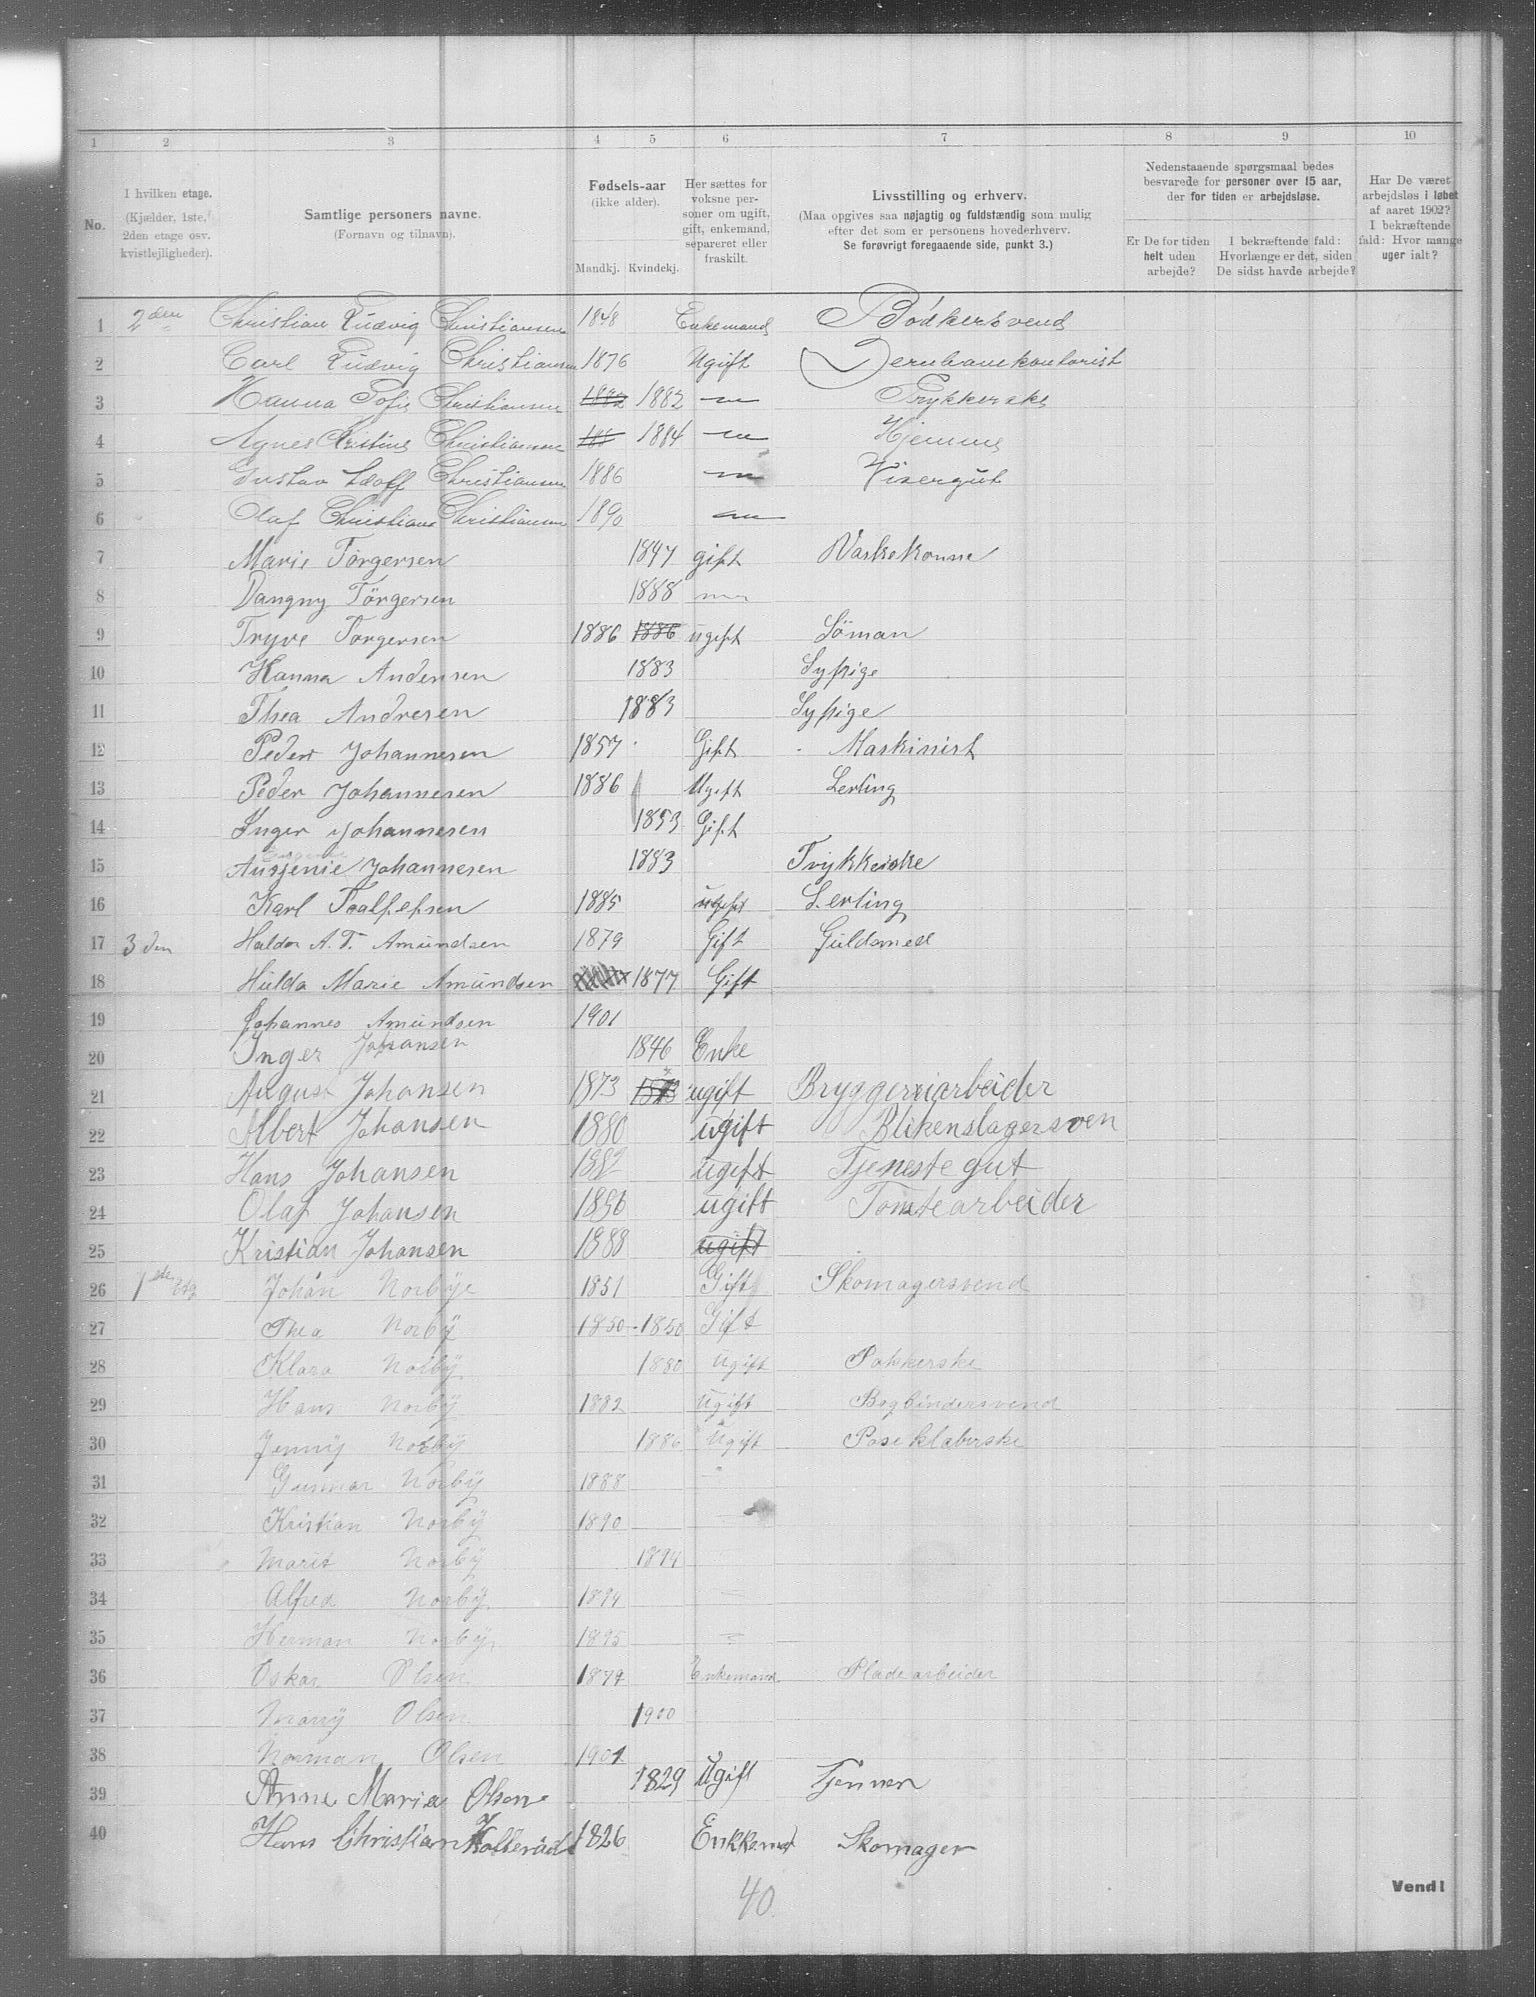 1 2 3 4 5 6 7 8 9 10
No.
I hvilken etage. (Kjælder, 1ste, 2den etage osv. kvistlejligheder).
Samtlige personers navne. (Fornavn og tilnavn).
Fødsels-aar (ikke alder). Mandkj. Kvindekj.
Her sættes for voksne personer om ugift, gift, enkemand, separeret eller fraskilt.
Livsstilling og erhverv. (Maa opgives saa nøjagtig og fuldstændig som mulig efter det som er personens hovederhverv. Se forøvrigt foregaaende side, punkt 3.)
Nedenstaaende spørgsmaal bedes besvarede for personer over 15 aar, der for tiden er arbejdsløse.
Er De for tiden helt uden arbejde?
I bekræftende fald: Hvorlænge er det, siden De sidst havde arbejde?
Har De været arbejdsløs i løbet af aaret 1902? I bekræftende fald: Hvor mange uger ialt?
1 2den Christian Ludvig Christiansen 1848 Enkemand Bödkersvend
2 Carl Ludvig Christiansen 1876 Ugift Jernbanekontorist
3 Hanna Sofie Christiansen 1882 1882 — Trykkerske
4 Agnes Kristine Christiansen 188 1884 — Hjemme
5 Gustav Adolf Christiansen 1886 — Visergut
6 Olaf Christian Christiansen 1890 —
7 Marie Torgersen 1847 gift Vaskekonne
8 Dangny Törgersen 1888 —
9 Tryve Torgersen 1886 1886 ugift Söman
10 Hanna Andersen 1883 Sypige
11 Thea Andresen 1883 Sypige
12 Peder Johannesen 1857 Gift Maskinist
13 Peder Johannesen 1886 Ugift Lerling
14 Inger Johannesen 1853 Gift
15 Ausjenie Johannesen 1883 Trykkerske
16 Karl 1885 ugift Lerling
17 3den Haldor A. T. Amundsen 1879 Gift Guldsmed
18 Hulda Marie Amundsen 1877 Gift
19 Johannes Amundsen 1901
20 Inger Johansen 1846 Enke
21 August Johansen 1873 1873 ugift Bryggeriarbeider
22 Albert Johansen 1880 ugift Blikenslagersven
23 Hans Johansen 1882 ugift Tjenestegut
24 Olaf Johansen 1886 ugift Tomtearbeider
25 Kristian Johansen 1888 ugift
26 1ste Etg Johan Norbye 1851 Gift Skomagersvend
27 Thea Norbÿ 1850 - 1850 Gift
28 Klara Norbÿ 1880 Ugift Pakkerske
29 Hans Norbÿ 1882 Ugift Bogbindersvend
30 Jenny Norbÿ 1886 Ugift Poseklaberske
31 Gunnar Norbÿ 1888 "
32 Kristian Norbÿ 1890
33 Marit Norbÿ 1894
34 Alfred Norbÿ 1894
35 Herman Norbÿ 1895
36 Oskar Olsen 1874 Enkemand Pladearbeider
37 Marry Olsen 1900
38 Norman Olsen 1901
39 Anne Maria Olsen 1829 Ugift
40 Hans Christian 1826 Enkkemd Skomager
40
Vend!